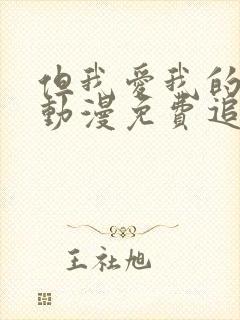 但我愛我的
動漫免費追
王社旭